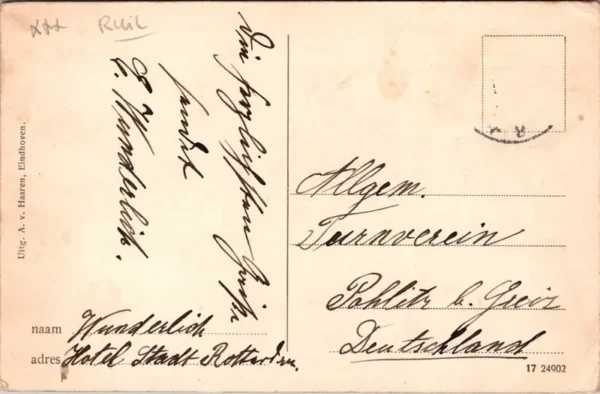 Ruil
Die herzlichsten Grüße
sendet
E. Wunderlich.
Uitg. A. v. Haaren, Eindhoven.
naam Wunderlich
adres Hotel Stadt Rotterdam.
Allgem.
Turnverein
Pohlitz b. Greiz
Deutschland
17 24902